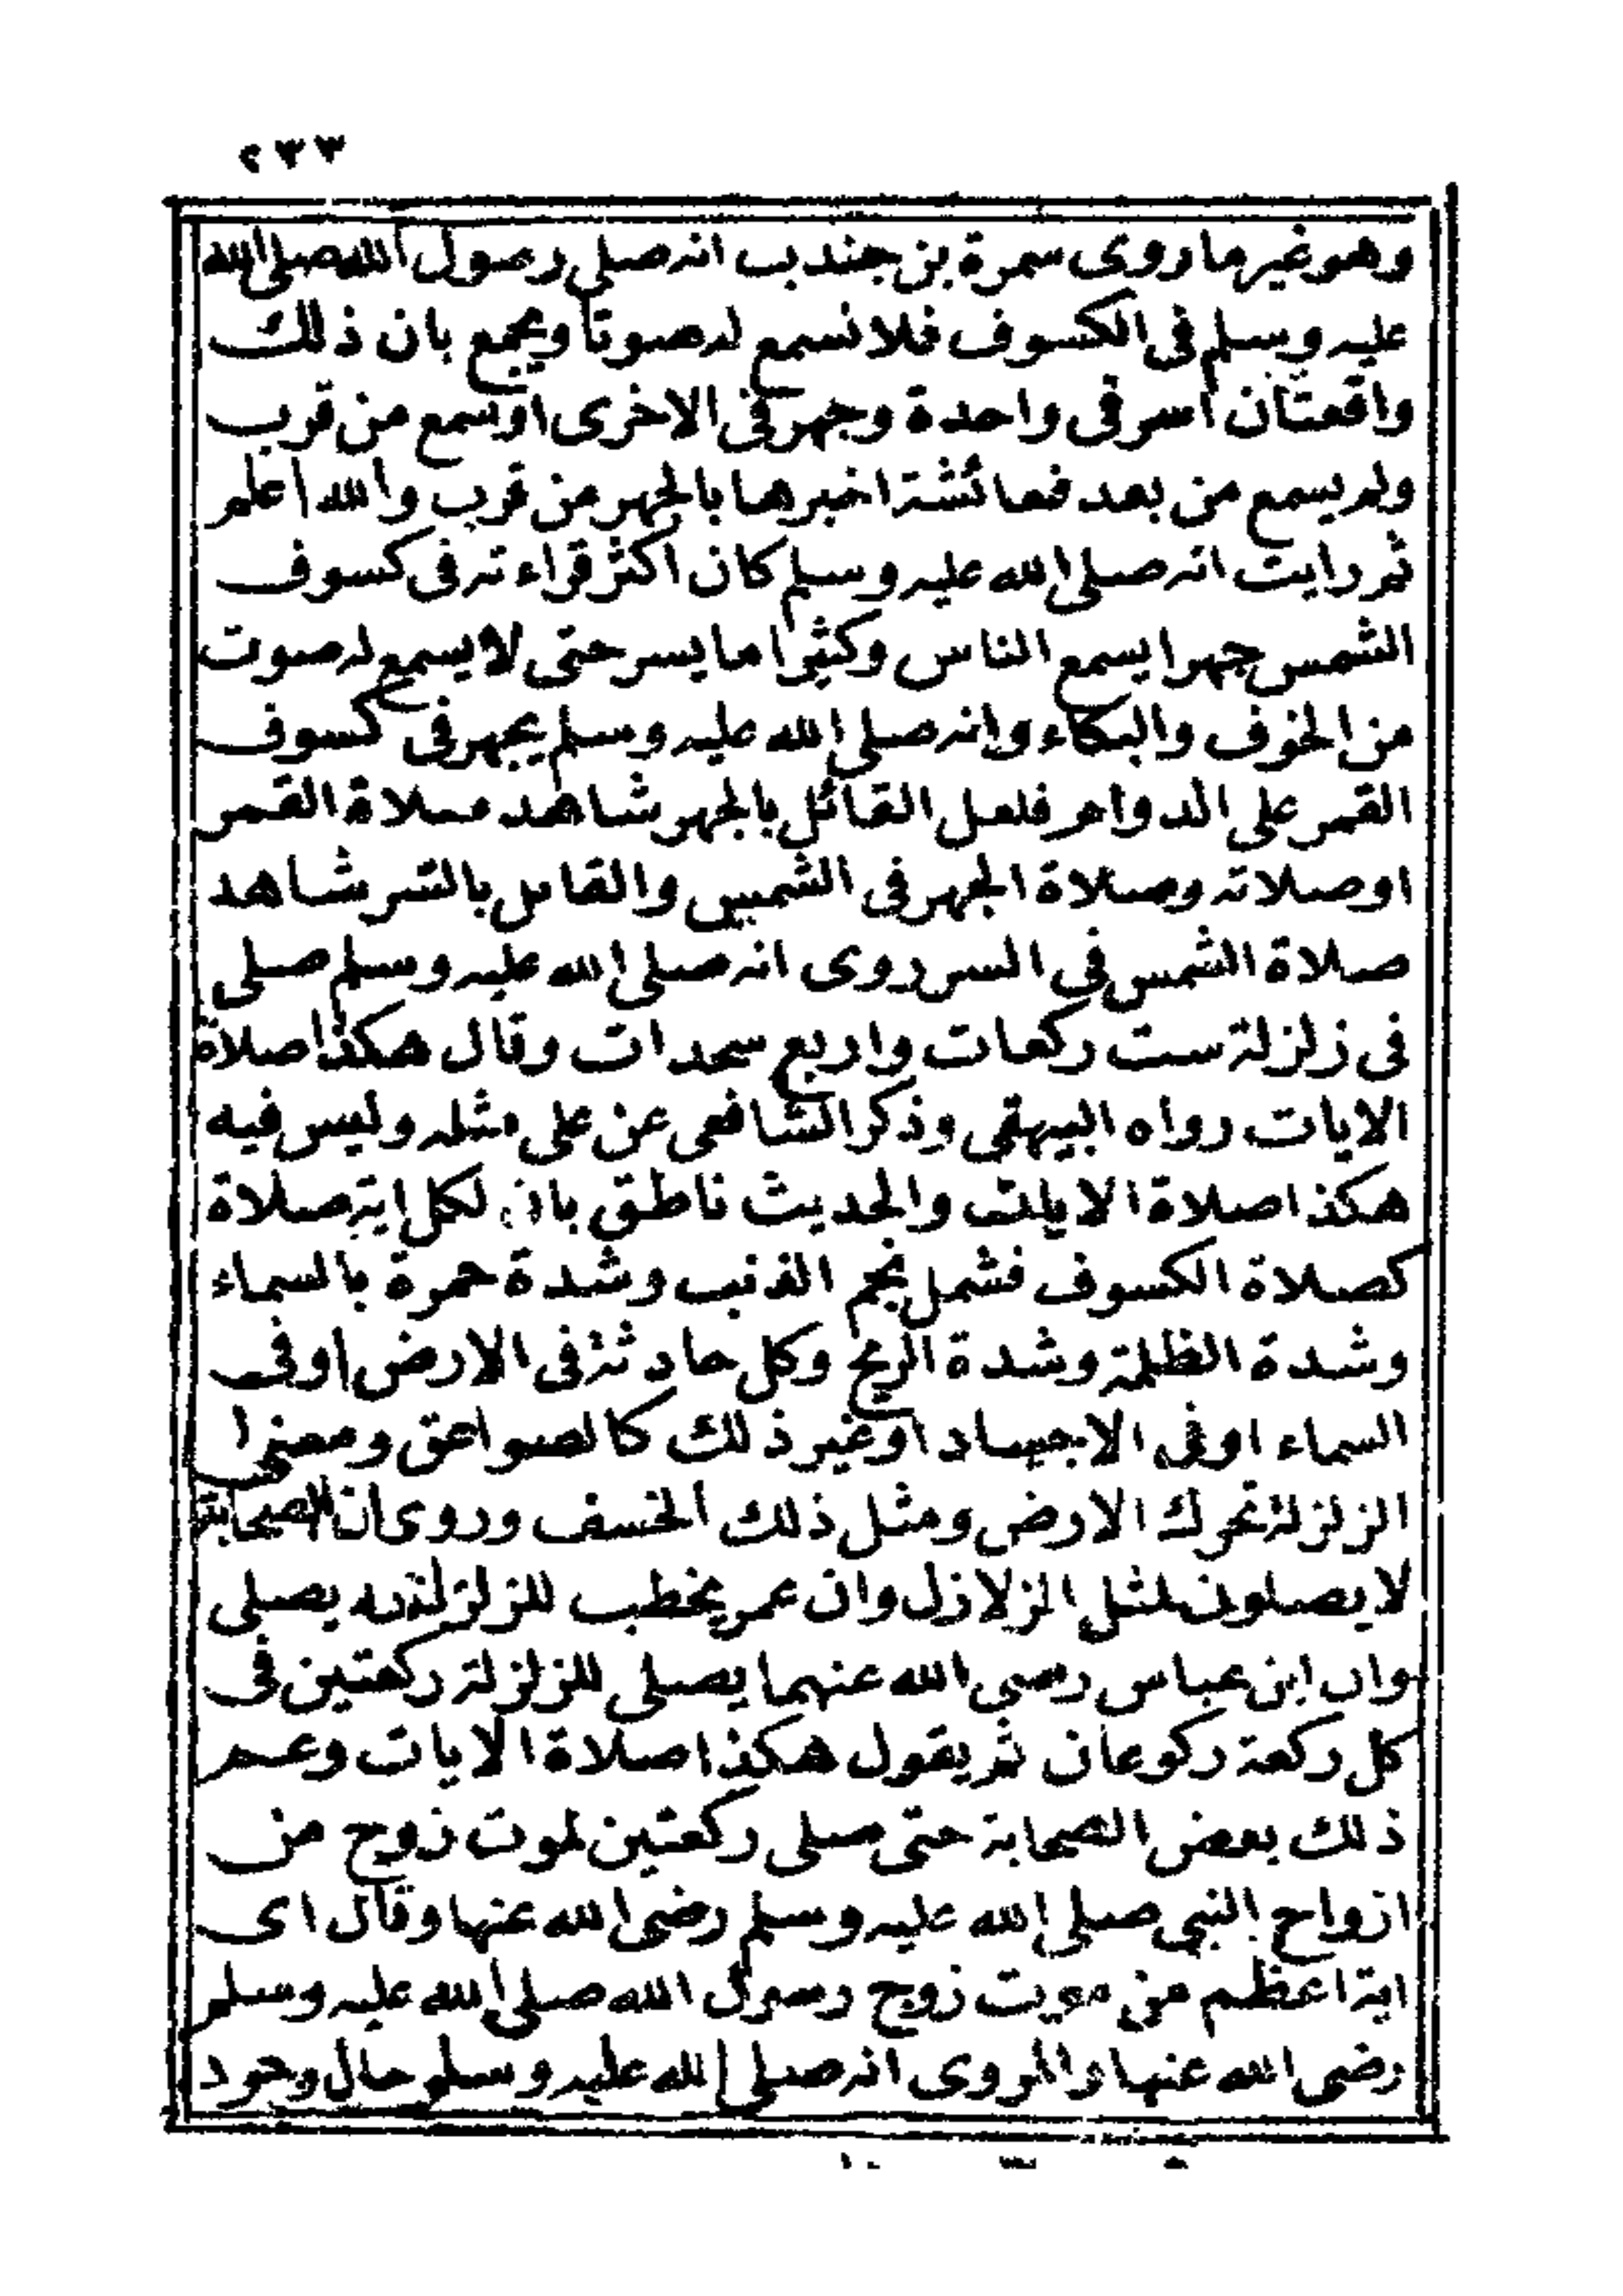 ٢٣٣
وهو غير ما روى سمرة بن جندب انه صلى رسول الله صلى الله
عليه وسلم فى الكسوف فلا نسمع له صوتا ويجمع بان ذلك
واقعتان اسر فى واحدة وجهر فى الاخرى او سمع من قرب
ولم يسمع من بعد فعائشة اخبرها بالجهر من قرب والله اعلم
ثم رايت انه صلى الله عليه وسلم كان اكثر قراءته فى كسوف
الشمس جهرا يسمع الناس وكثيرا ما يسر حتى لا يسمع له صوت
من الخوف والبكاء وانه صلى الله عليه وسلم يجهر فى كسوف
القمر على الدوام فلعل القائل بالجهر شاهد صلاة القمر
او صلاته وصلاة الجهر فى الشمس والقائل بالسر شاهد
صلاة الشمس فى السر روى انه صلى الله عليه وسلم صلى
فى زلزلة ست ركعات واربع سجدات وقال هكذا صلاة
الايات رواه البيهقى وذكر الشافعى عن على مثله وليس فيه
هكذا صلاة الايات والحديث ناطق بان لكل اية صلاة
كصلاة الكسوف فشمل نجم الذنب وشدة حمرة بالسماء
وشدة الظلمة وشدة الريح وكل حادثة فى الارض او فى
السماء او فى الاجساد او غير ذلك كالصواعق ومعنى
الزلزلة تحرك الارض ومثل ذلك الخسف وروى ان الصحابة
لا يصلون لمثل الزلازل وان عمر يخطب للزلزلة يصلى
وان ابن عباس رضى الله عنهما يصلى للزلزلة ركعتين فى
كل ركعة ركوعان ثم يقول هكذا صلاة الايات وعمم
ذلك بعض الصحابة حتى صلى ركعتين لموت زوج من
ازواج النبى صلى الله عليه وسلم رضى الله عنها وقال اى
اية اعظم من موت زوج رسول الله صلى الله عليه وسلم
رضى الله عنها والمروى انه صلى الله عليه وسلم حال وجود